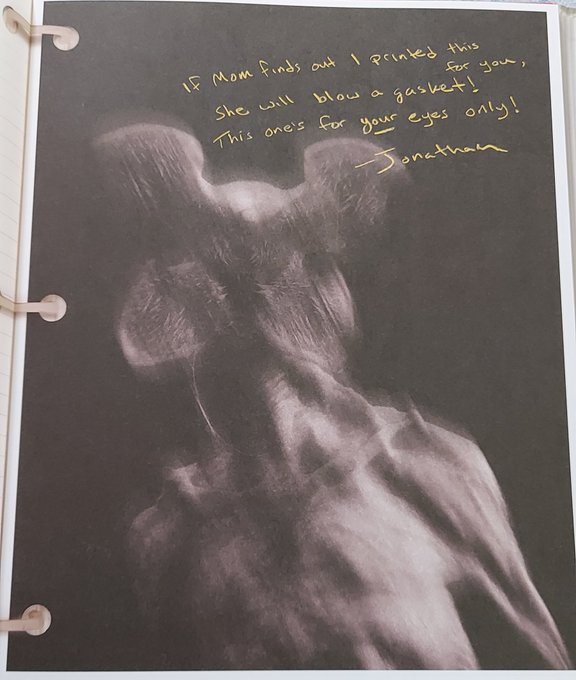 If Mom finds out I printed this
for you,
she will blow a gasket!
This one's for your eyes only!
—Jonathan